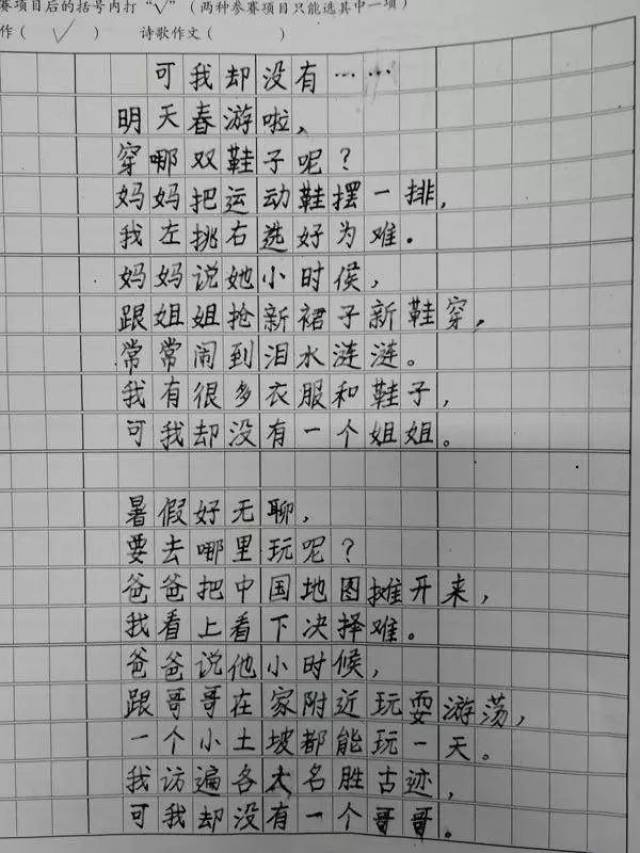 赛项目后的括号内打“√”(两种参赛项目只能选其中一项)
作( √ ) 诗歌作文( )
可我却没有……
明天春游啦,
穿哪双鞋子呢?
妈妈把运动鞋摆一排,
我左挑右选好为难。
妈妈说她小时候,
跟姐姐抢新裙子新鞋穿,
常常闹到泪水涟涟。
我有很多衣服和鞋子,
可我却没有一个姐姐。
暑假好无聊,
要去哪里玩呢?
爸爸把中国地图摊开来,
我看上看下决择难。
爸爸说他小时候,
跟哥哥在家附近玩耍游荡,
一个小土坡都能玩一天。
我访遍各大名胜古迹,
可我却没有一个哥哥。